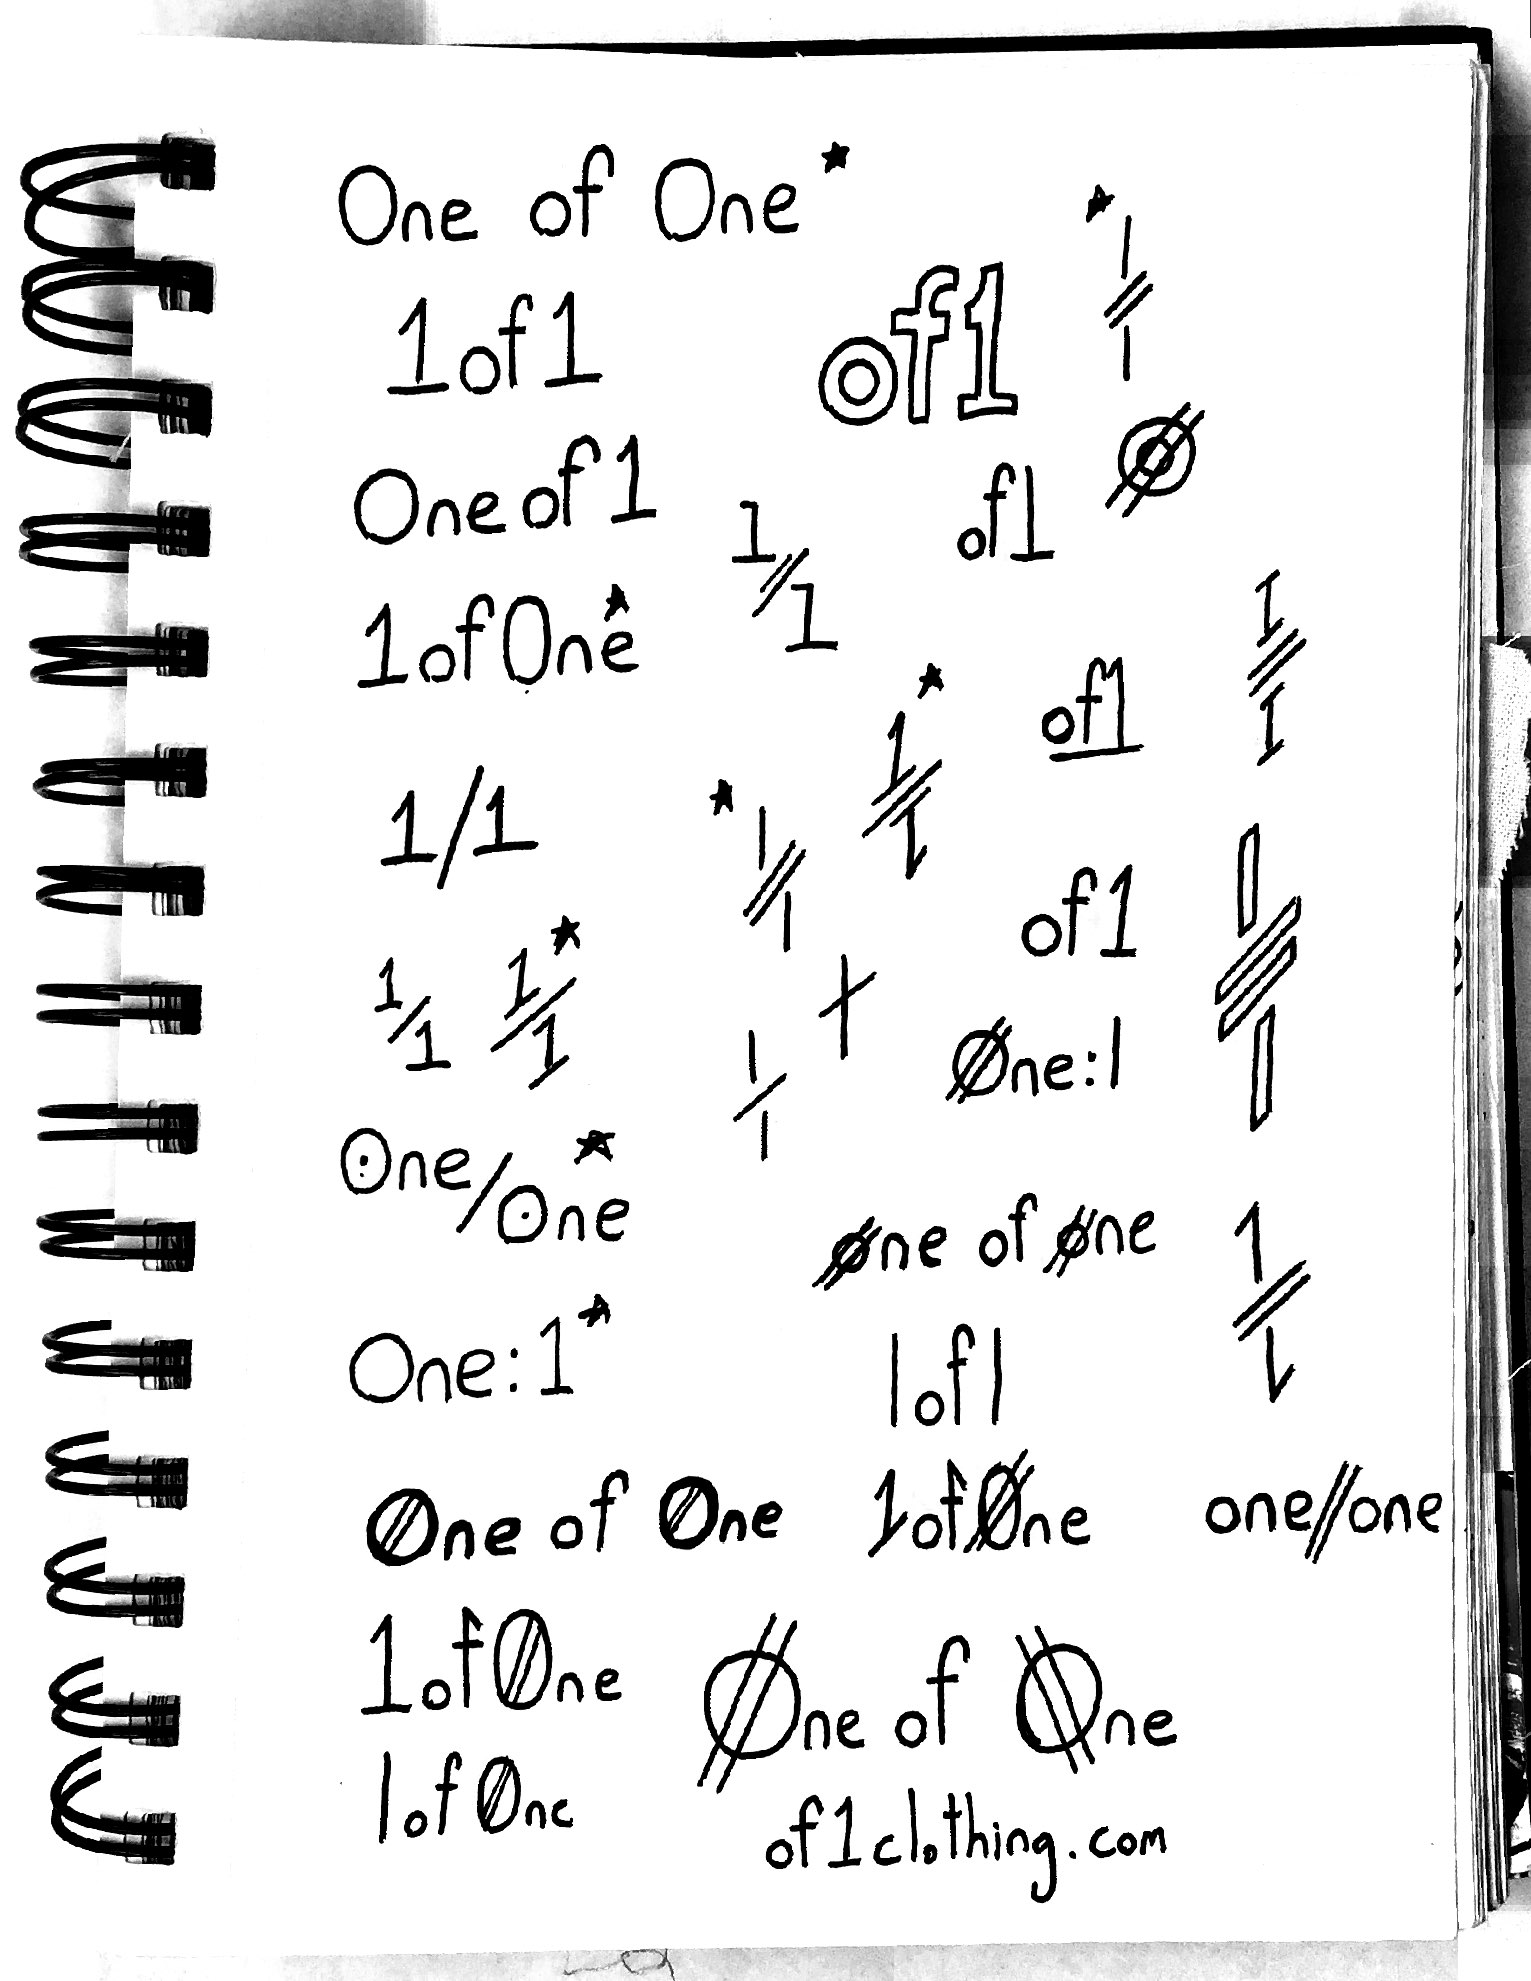 One of One*
1of1
of1
1//1
One of 1
of1
1//1
1ofOne*
of1
1//1
1/1
1//1*
*1//1
of1
1/1
1/1*
1//1
1/1
Øne:1
One/One*
øne of øne
1//1
One:1*
1of1
Øne of Øne
1ofØne
one//one
1ofØne
Øne of Øne
1ofØne
of1clothing.com